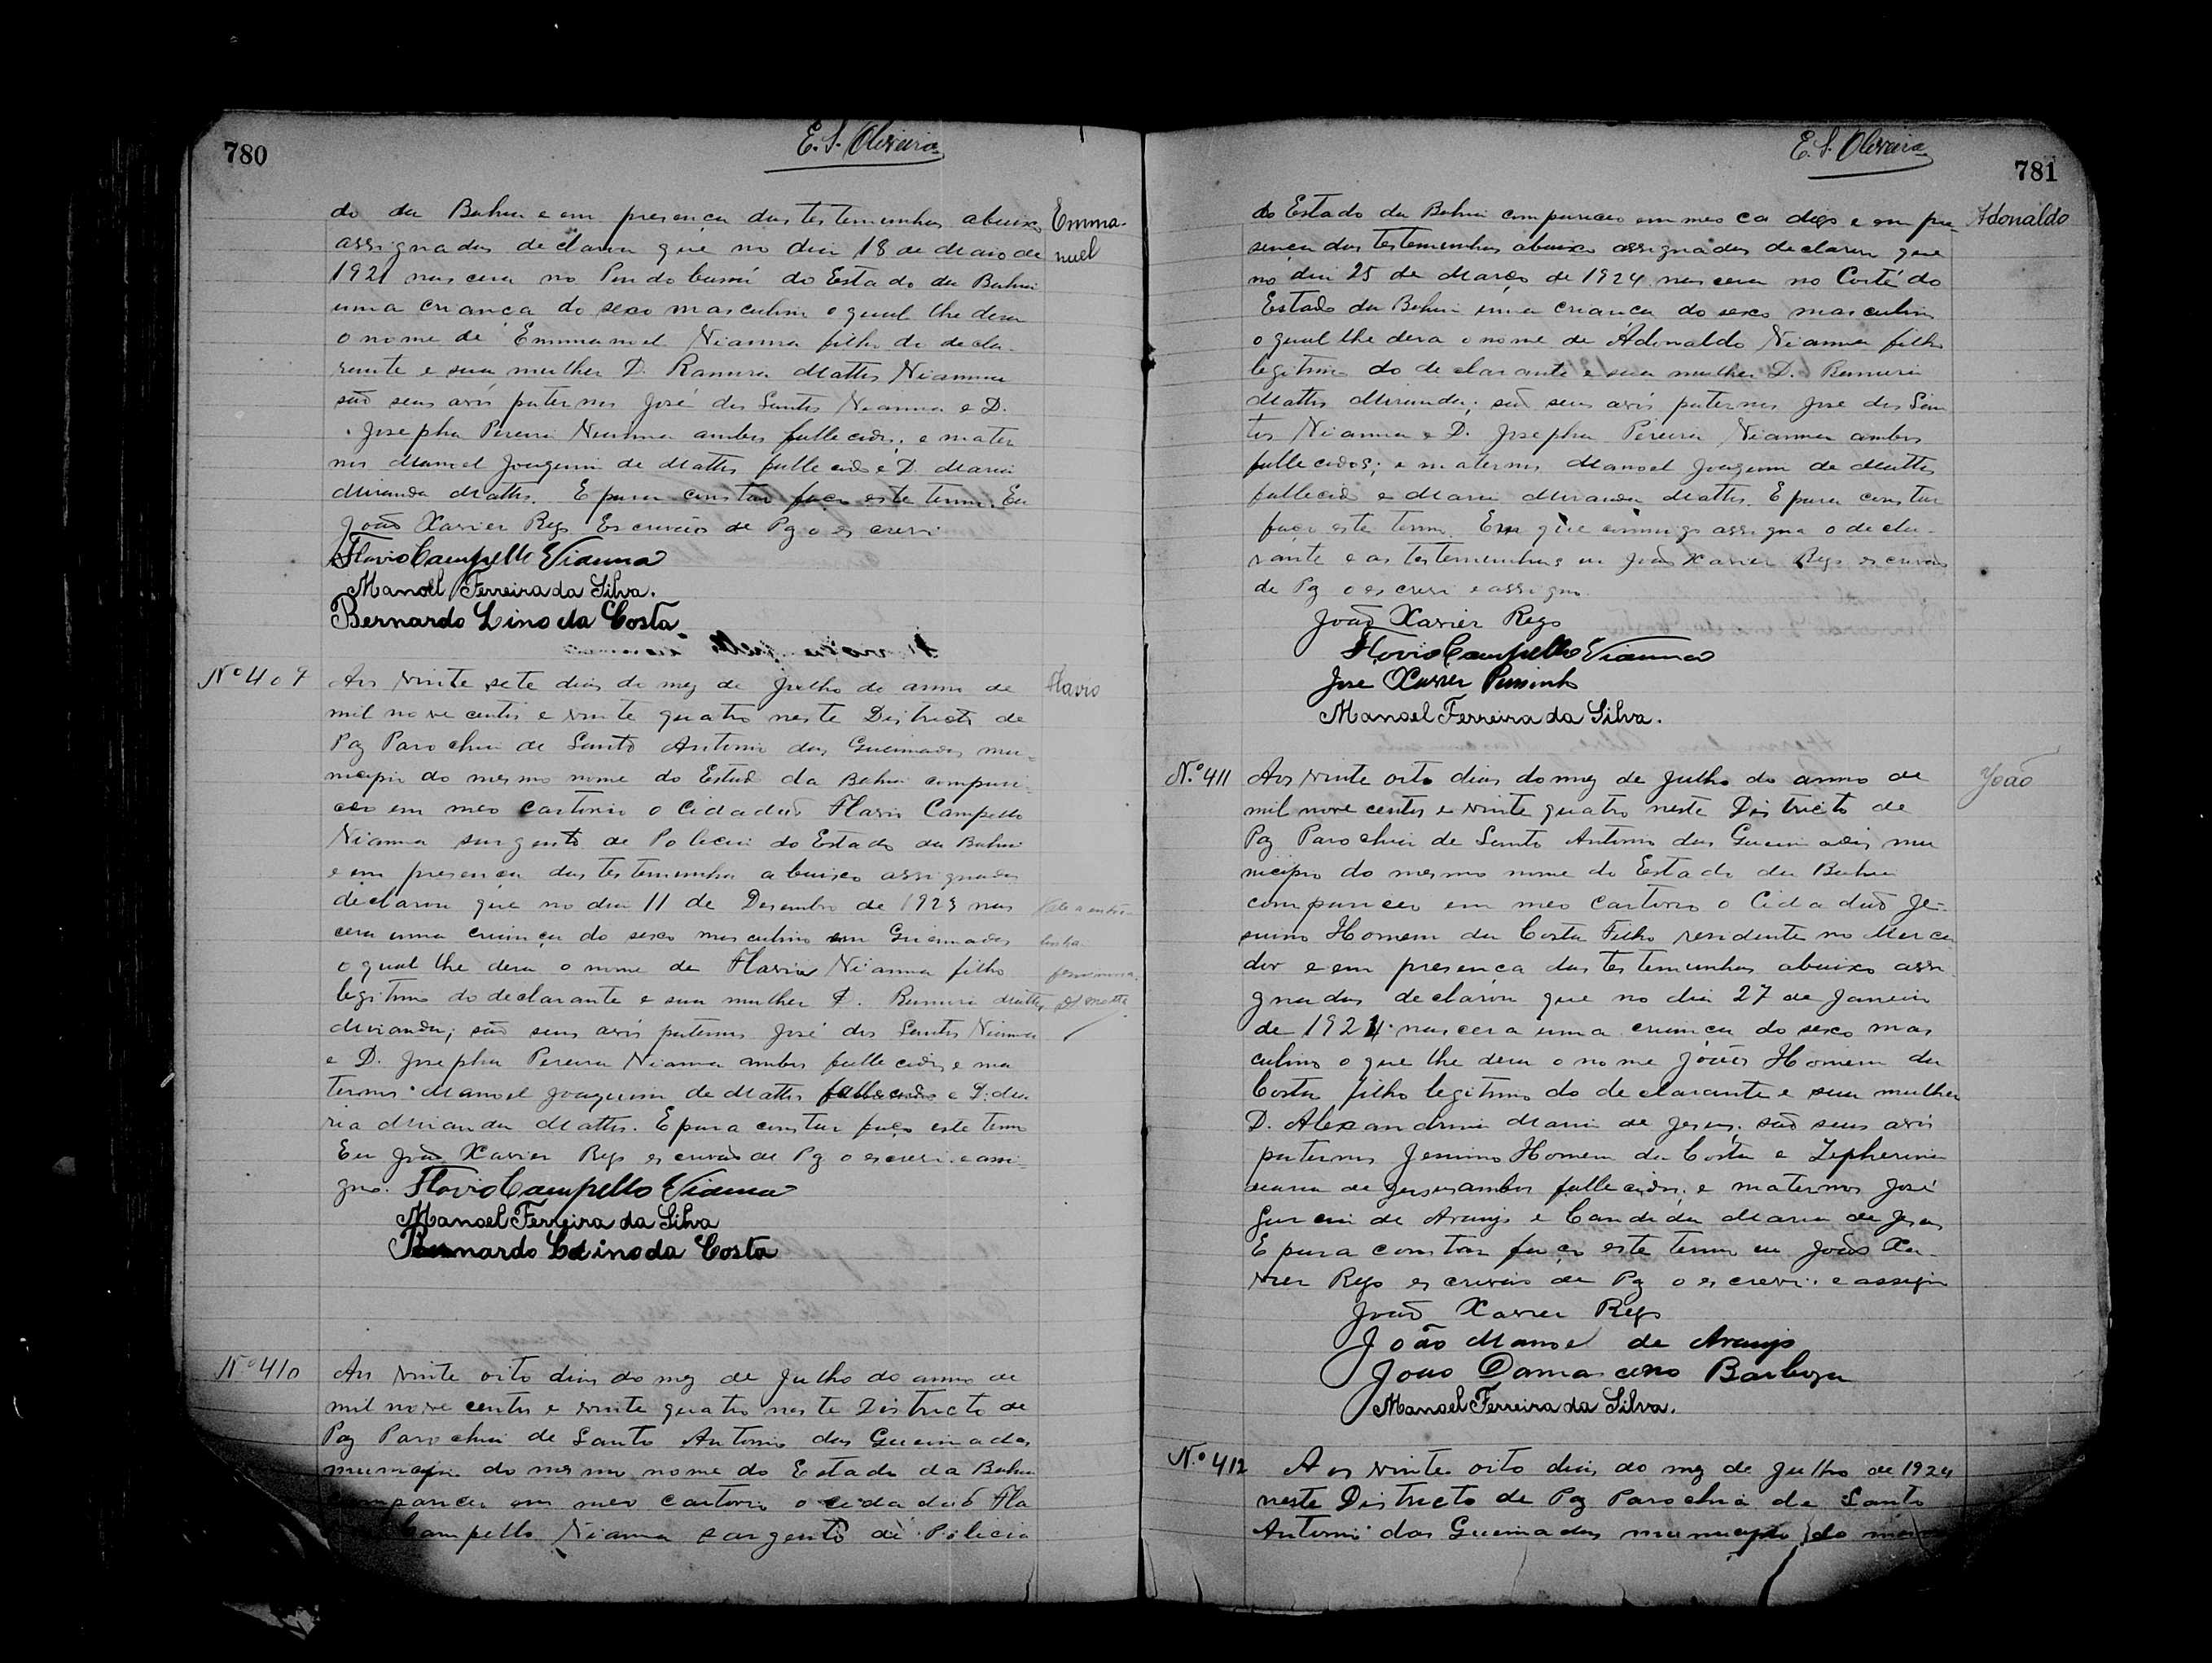 780
E. S. Oliveira
do da Bahia e em presença das testemunhas abaixo
assignadas declarou que no dia 18 de Maio de
1921 nascera no do Estado da Bahia
uma criança do sexo masculino o qual lhe dera
o nome de Emmanoel Vianna filho do decla-
rante e sua mulher D. Mattos Vianna
são seus avós paternos José dos Santos Vianna e D.
Josepha Pereira Vianna ambos fallecidos; e mater
nos Manoel Joaquim de Mattos fallecido e D. Maria
Miranda Mattos. E para constar faço este termo. Eu
João Xavier Rego Escrivão de Paz o escrevi
Flavio Campello Vianna
Manoel Ferreira da Silva.
Bernardo Lino da Costa
Emma-
nuel
Nº 409
Aos vinte sete dias do mez de Julho do anno de
mil nove centos e vinte quatro neste Districto de
Paz Parochia de Santo Antonio das Queimadas mu-
nicipio do mesmo nome do Estado da Bahia compare-
ceo em meo cartorio o Cidadão Flavio Campello
Vianna sargento de Policia do Estado da Bahia
e em presença das testemunha abaixo assignadas
declarou que no dia 11 de Desembro de 1923 nas
cera uma criança do sexo masculino em Queimadas
o qual lhe dera o nome de Flavio Vianna filho
legitimo do declarante e sua mulher D. Mattos
Miranda; são seus avós paternos José dos Santos Vianna
e D. Josepha Pereira Vianna ambos fallecidos e ma
ternos Manoel Joaquim de Mattos fallecido e D. Ma-
ria Miranda Mattos. E para constar faço este termo
Eu João Xavier Rego escrivão de Paz o escrevi e assi-
gno. Flavio Campello Vianna
Manoel Ferreira da Silva
Bernardo Lino da Costa
Flavio
Nº 410
Aos vinte oito dias do mez de Julho do anno de
mil nove centos e vinte quatro neste Districto de
Paz Parochia de Santo Antonio das Queimadas
municipio do mesmo nome do Estado da Bahia
compareceo em meo cartorio o cidadão Fla
Campello Vianna sargento de Policia
E. S. Oliveira
781
do Estado da Bahia compareceo em meo ca digo e em pre
sença das testemunhas abaixo assignadas declarou que
no dia 25 de Março de 1924 nascera no Corte do
Estado da Bahia uma criança do sexo masculino
o qual lhe dera o nome de Adonaldo Vianna filho
legitimo do declarante e sua mulher D.
Mattos Miranda; são seus avós paternos José dos San
tos Vianna e D. Josepha Pereira Vianna ambos
fallecidos; e maternos Manoel Joaquim de Mattos
fallecido e Maria Miranda Mattos. E para constar
faço este termo. Em que commigo assigna o decla-
rante e as testemunhas eu João Xavier Rego escrivão
de Paz o escrevi e assigno.
João Xavier Rego
Flavio Campello Vianna
Jose Xavier
Manoel Ferreira da Silva.
Adonaldo
N.º 411
Aos vinte oito dias do mez de Julho do anno de
mil nove centos e vinte quatro neste Districto de
Paz Parochia de Santo Antonio das Queimadas mu
nicipio do mesmo nome do Estado da Bahia
compareceo em meo Cartorio o Cidadão Je-
suino Homem da Costa Filho residente no Merca
dor e em presença das testemunhas abaixo assi
gnadas declarou que no dia 27 de Janeiro
de 1924 nascera uma criança do sexo mas
culino o que lhe dera o nome João Homem da
Costa filho legitimo do declarante e sua mulher
D. Alexandrina Maria de Jesus; são seus avós
paternos Jesuino Homem da Costa e Zepherina
Maria de Jesus ambos fallecidos; e maternos José
Garcia de Araujo e Candida Maria de Jesus
E para constar faço este termo eu João Xa-
vier Rego escrivão de Paz o escrevi e assigno
João Xavier Rego
João Manoel de Araujo
Joao Damasceno Barboza
Manoel Ferreira da Silva.
João
N.º 412
Aos vinte oito dias do mez de Julho de 1924
neste Districto de Paz Parochia de Santo
Antonio das Queimadas municipio do mesmo